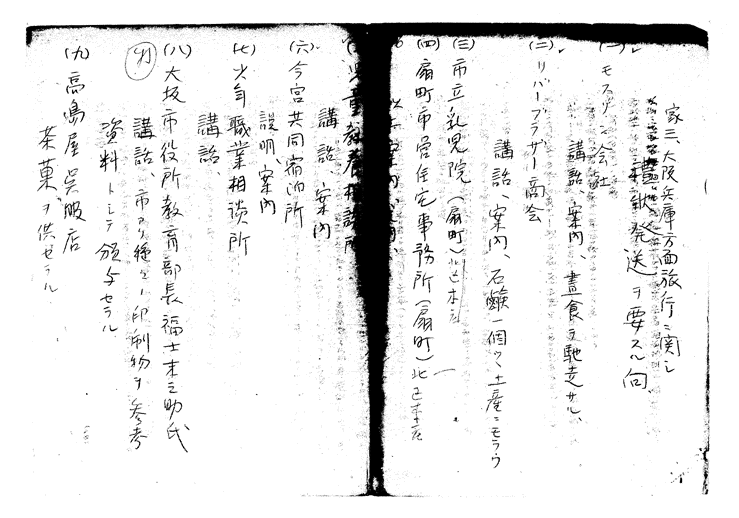 家三、大阪兵庫方面旅行ニ関シ
礼状発送ヲ要スル向
(一) モスリン会社
講話、案内、晝食ヲ馳走サル、
(二) リバーブラザー商会
講話、案内、石鹸一個ヅヽ土産ニモラウ
(三) 市立乳児院(扇町)北区本庄
(四) 扇町市営住宅事務所(扇町)北区本庄
児童教養相談所
講話、案内
(六) 今宮共同宿泊所
説明、案内
(七) 少年職業相談所
講話、
(八) 大坂市役所教育部長福士末之助氏
講話、市アリ種々ノ印刷物ヲ参考
資料トシテ頒与セラル
(九) 高島屋呉服店
茶菓ヲ供セラル